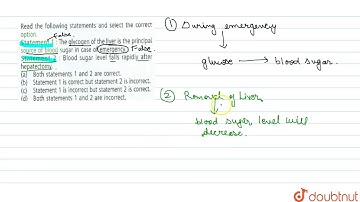 Read the following statements and select the correct
option. False
Statement 1 : The glycogen of the liver is the principal
source of blood sugar in case of emergency. False
Statement 2 : Blood sugar level falls rapidly after
hepatectomy.
(a) Both statements 1 and 2 are correct.
(b) Statement 1 is correct but statement 2 is incorrect.
(c) Statement 1 is incorrect but statement 2 is correct.
(d) Both statements 1 and 2 are incorrect.
(1) During emergency
glucose → blood sugar.
(2) Removal of Liver,
blood sugar level will
decrease.
doubtnut